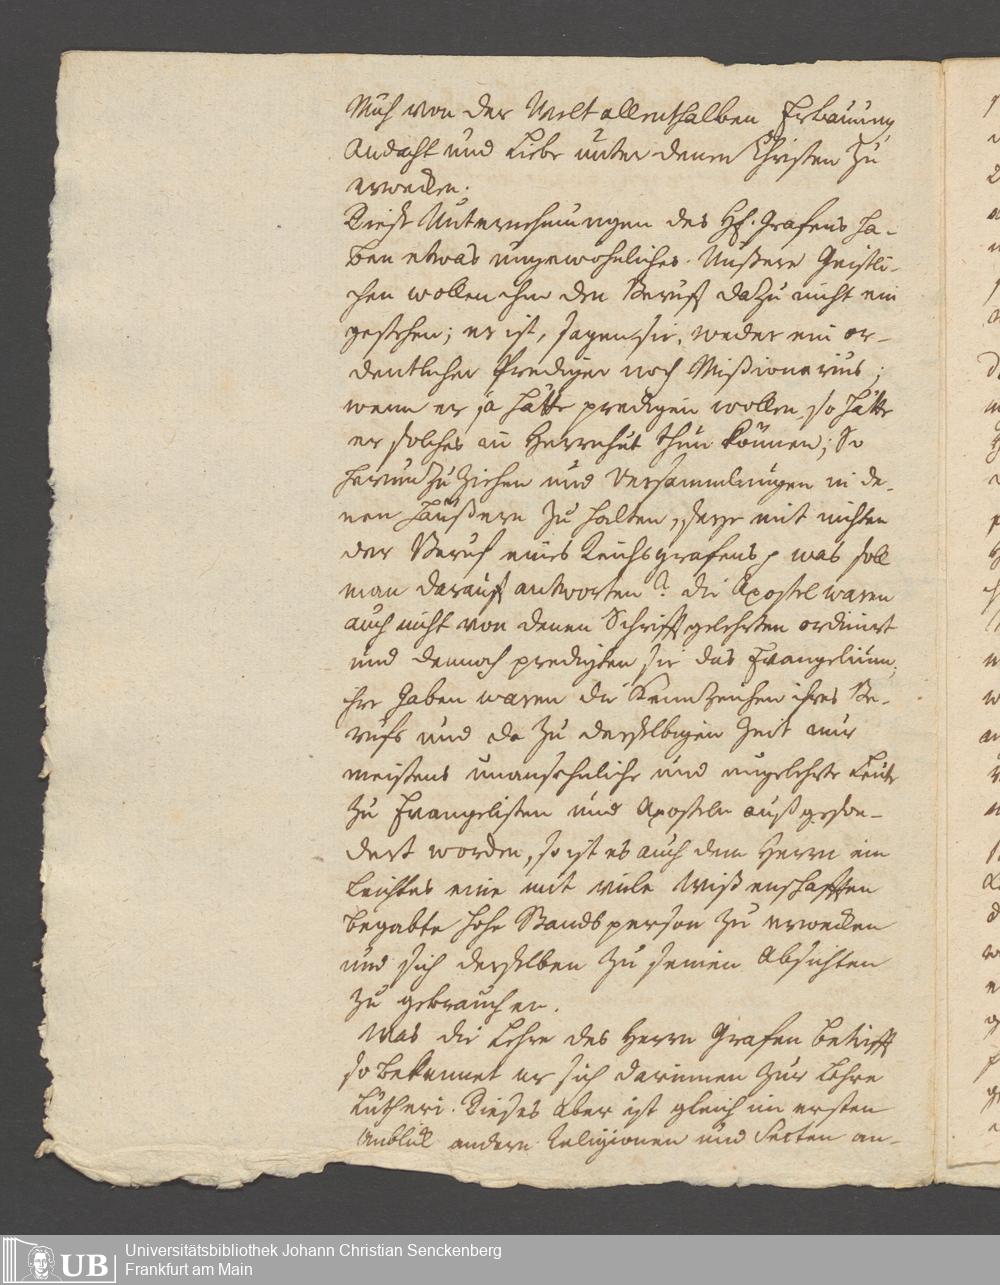 Auch von der Welt allenthalben Erbauung
Andacht und Liebe unter denen Christen zu
erwecken.
Diese Unternehmungen des H. Grafens ha-
ben etwas ungewohnliches. Unßere Geistli-
chen wollen ihm den Beruff dazu nicht ein
gestehen; er ist, sagen sie, weder ein or-
dentlicher Prediger noch Mißionarius;
wenn er ja hätte predigen wollen, so hätte
er solches in Herrnhut thun können; So
herum zu ziehen und Versammlungen in de-
nen Häußern zu halten, seye mit nichten
der Beruf eines Reichsgrafens, was soll
man darauf antworten? die Apostel waren
auch nicht von denen Schrifftgelehrten ordinirt
und dennoch predigten sie das Evangelium;
ihre Gaben waren die Kennzeichen ihres Be-
rufs und da zu derselbigen Zeit nur
meistens unansehnliche und ungelehrte Leute
zu Evangelisten und Aposteln außgeson-
dert worden, so ist es auch dem Herrn ein
Leichtes eine mit viele Wißenschafften
begabte hohe Standsperson zu erwecken
und sich derselben zu seinen Absichten
zu gebrauchen.
Was die Lehre des Herrn Grafen betrifft
so bekennet er sich darinnen zur Lehre
Lutheri. Dieses aber ist gleich im ersten
Anblick andern Religionen und Secten an-
UB
Universitätsbibliothek Johann Christian Senckenberg
Frankfurt am Main